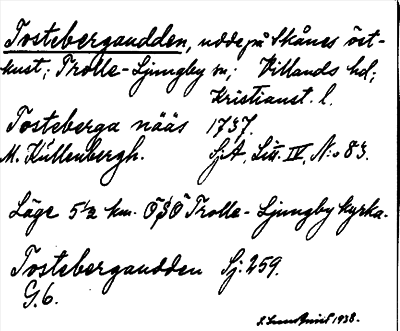 Tostebergaudden, udde på Skånes öst-
kust; Trolle-Ljungby sn; Villands hd;
Kristianst. l.
Tosteberga nääs 1737.
M. Kullenbergh. SjA, Litt. IV, N:o 83.
Läge 5½ km. OSO Trolle-Ljungby kyrka.
Tostebergaudden Sj. 259.
G.6.
1938.